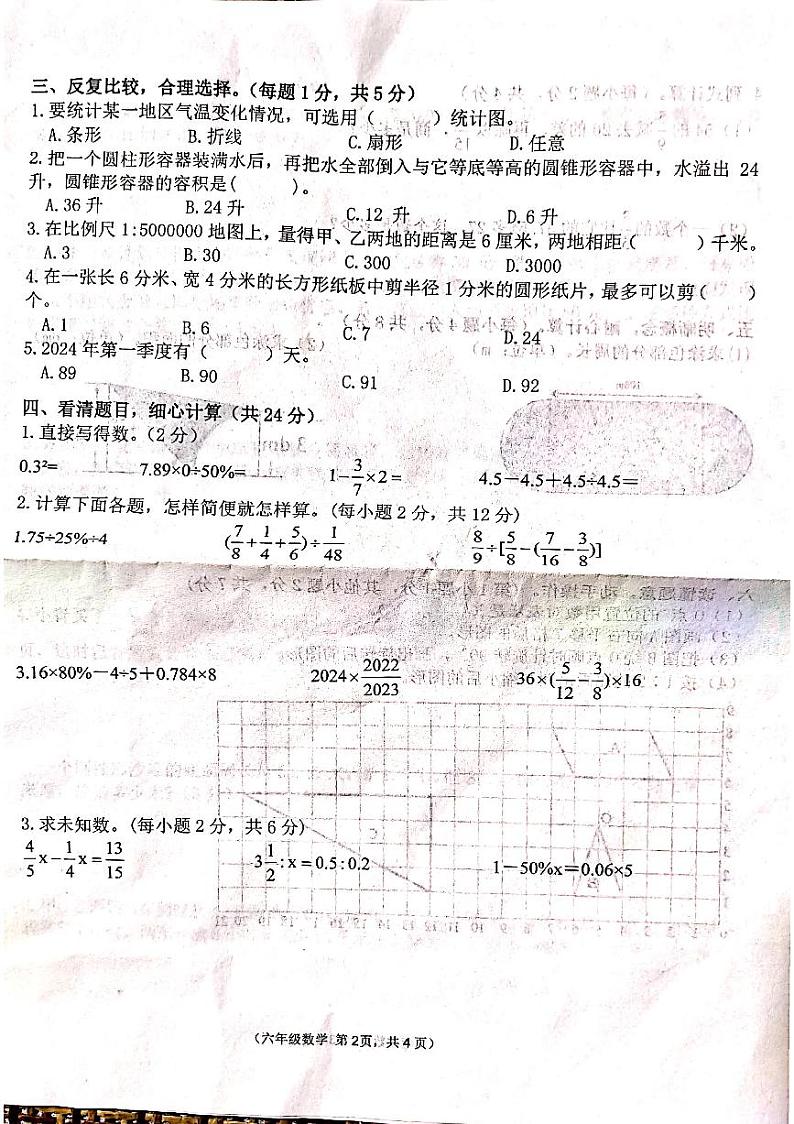 三、反复比较，合理选择。（每题1分，共5分）
1.要统计某一地区气温变化情况，可选用（　　）统计图。
A.条形　B.折线　C.扇形　D.任意
2.把一个圆柱形容器装满水后，再把水全部倒入与它等底等高的圆锥形容器中，水溢出 24
升，圆锥形容器的容积是（　　）。
A.36 升　B.24 升　C.12 升　D.6 升
3.在比例尺 1:5000000 地图上，量得甲、乙两地的距离是 6 厘米，两地相距（　　）千米。
A.3　B.30　C.300　D.3000
4.在一张长 6 分米、宽 4 分米的长方形纸板中剪半径 1 分米的圆形纸片，最多可以剪（　　）
个。
A.1　B.6　C.7　D.24
5.2024 年第一季度有（　　）天。
A.89　B.90　C.91　D.92
四、看清题目，细心计算（共 24 分）
1.直接写得数。（2 分）
0.3²=　7.89×0÷50%=　1−3/7×2=　4.5−4.5+4.5÷4.5=
2.计算下面各题，怎样简便就怎样算。（每小题 2 分，共 12 分）
1.75÷25%÷4　(7/8+1/4+5/6)÷1/48　8/9÷[5/8−(7/16−3/8)]
3.16×80%−4÷5+0.784×8　2024×2022/2023　36×(5/12−3/8)×16
3.求未知数。（每小题 2 分，共 6 分）
4/5x−1/4x=13/15　3 1/2:x=0.5:0.2　1−50%x=0.06×5
（六年级数学 第 2页，共 4 页）